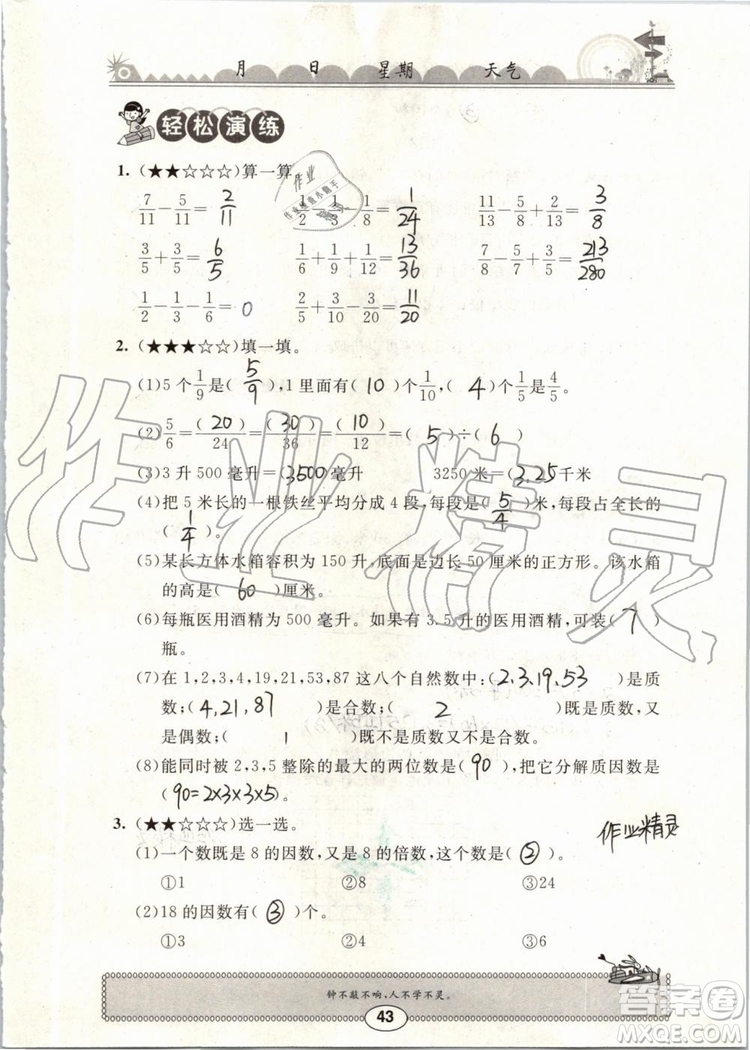 月 日 星期 天气
轻松演练
1. (★★☆☆☆)算一算。
7/11-5/11=2/11 1/2-1/3-1/8=1/24 11/13-5/8+2/13=3/8
3/5+3/5=6/5 1/6+1/9+1/12=13/36 7/8-5/7+3/5=213/280
1/2-1/3-1/6=0 2/5+3/10-3/20=11/20
2. (★★★☆☆)填一填。
(1)5个1/9是(5/9),1里面有(10)个1/10,(4)个1/5是4/5。
(2)5/6=(20)/24=(30)/36=(10)/12=(5)÷(6)
(3)3升500毫升=(3500)毫升 3250米=(3.25)千米
(4)把5米长的一根铁丝平均分成4段,每段是(5/4)米,每段占全长的
(1/4)。
(5)某长方体水箱容积为150升,底面是边长50厘米的正方形。该水箱
的高是(60)厘米。
(6)每瓶医用酒精为500毫升。如果有3.5升的医用酒精,可装(7)
瓶。
(7)在1,2,3,4,19,21,53,87这八个自然数中:(2,3,19,53)是质
数;(4,21,87)是合数;(2)既是质数,又
是偶数;(1)既不是质数又不是合数。
(8)能同时被2,3,5整除的最大的两位数是(90),把它分解质因数是
(90=2×3×3×5)。
3. (★★☆☆☆)选一选。
作业精灵
(1)一个数既是8的因数,又是8的倍数,这个数是(②)。
①1 ②8 ③24
(2)18的因数有(③)个。
①3 ②4 ③6
钟不敲不响,人不学不灵。
43
作业精灵
答案圈
MXQE.COM